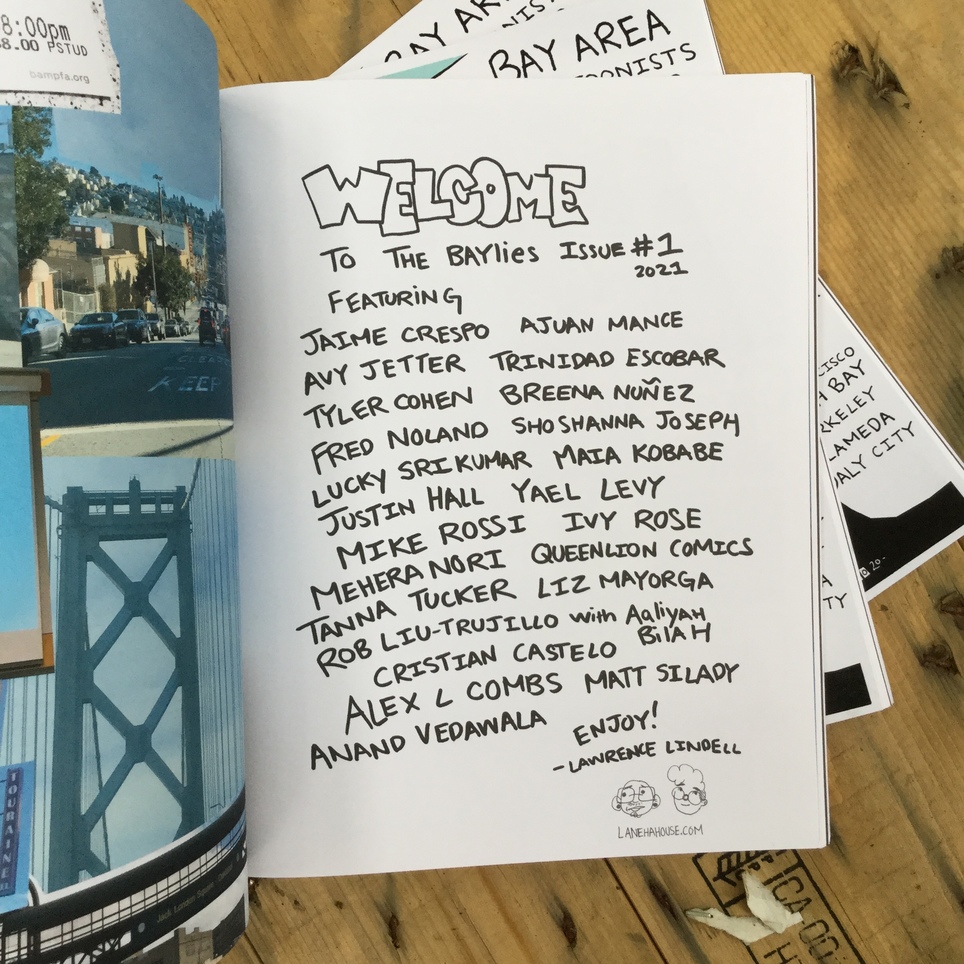 8:00pm
8.00 PSTUD
bampfa.org
BAY AR
NIS
BAY AREA
WELCOME
TO THE BAYlies ISSUE #1
2021
FEATURING
JAIME CRESPO AJUAN MANCE
AVY JETTER TRINIDAD ESCOBAR
TYLER COHEN BREENA NUÑEZ
FRED NOLAND SHOSHANNA JOSEPH
LUCKY SRIKUMAR MAIA KOBABE
JUSTIN HALL YAEL LEVY
MIKE ROSSI IVY ROSE
MEHERA NORI QUEENLION COMICS
TANNA TUCKER LIZ MAYORGA
ROB LIU-TRUJILLO with Aaliyah
BilAH
CRISTIAN CASTELO
ALEX L COMBS MATT SILADY
ANAND VEDAWALA
ENJOY!
-LAWRENCE LINDELL
LANEHAHOUSE.COM
CISCO
H BAY
RKELEY
LAMEDA
DALY CITY
TY
KEEP
TOURAINE
Jack London Square